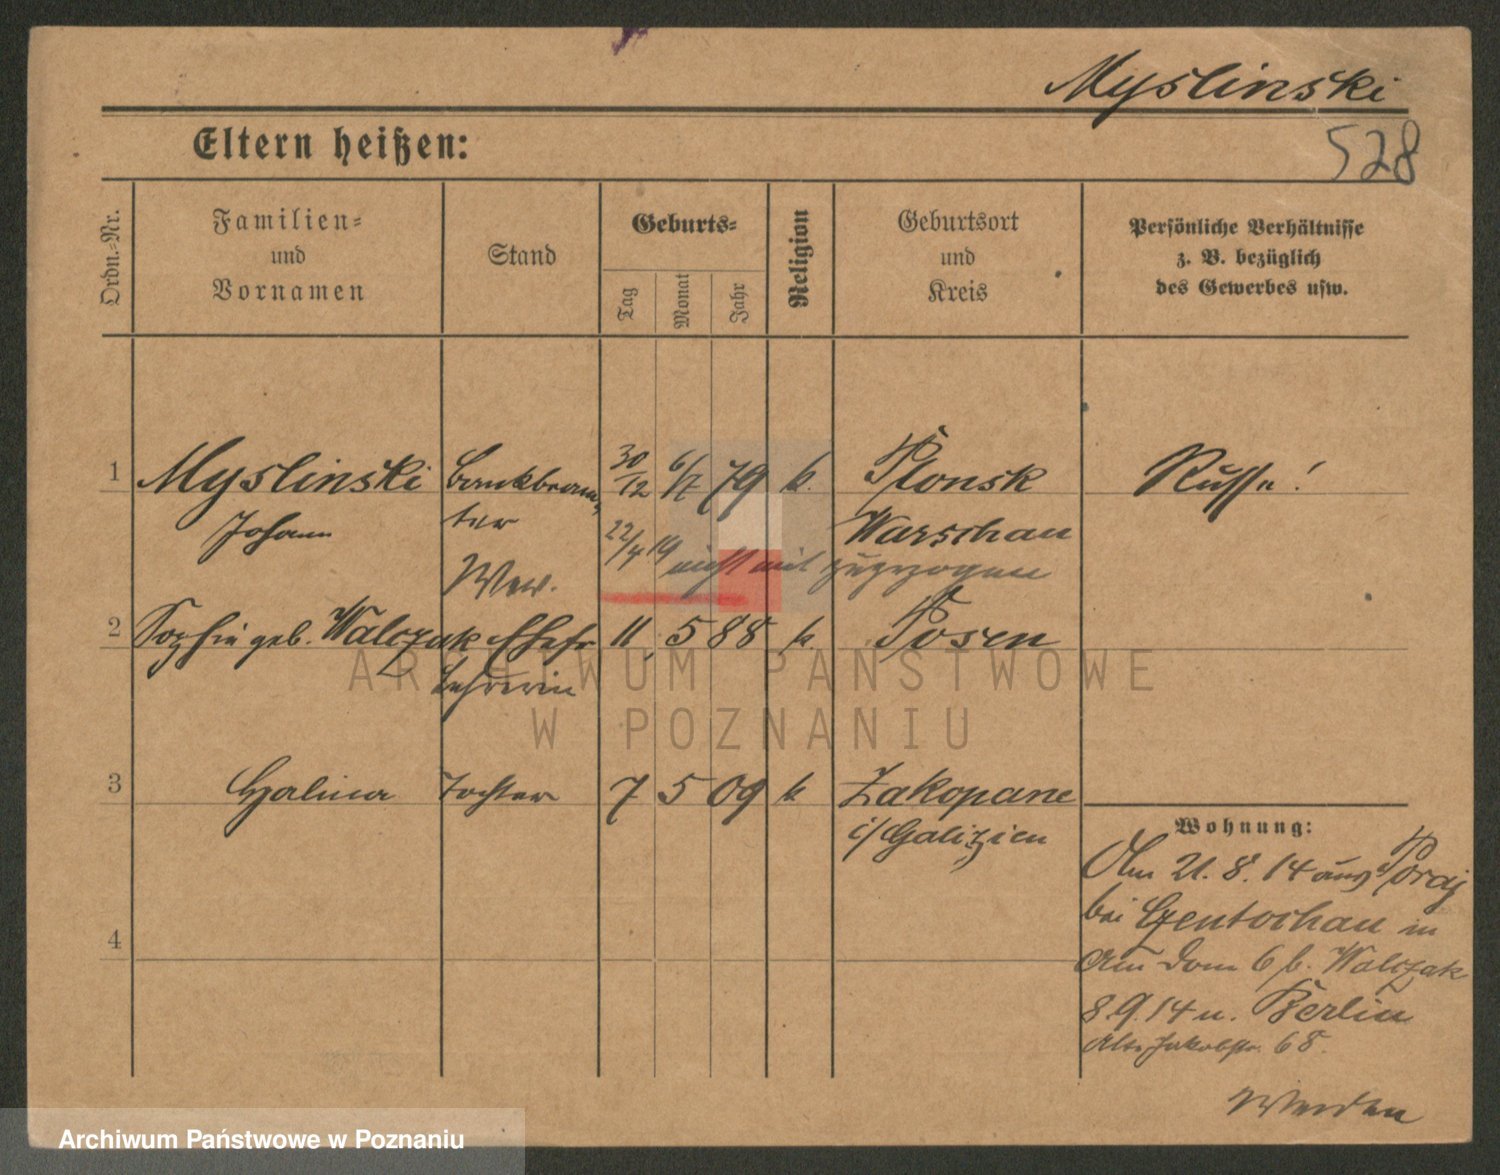 Myslinski
528
Eltern heißen:
Ordn.-Nr.
Familien-
und
Vornamen
Stand
Geburts-
Tag
Monat
Jahr
Religion
Geburtsort
und
Kreis
Persönliche Verhältnisse
z. B. bezüglich
des Gewerbes usw.
1 Myslinski Bankbeam- 30/12 6/7 79 k. Plonsk Russe!
Johann ter 22/4 19 Warschau
nicht mit zugezogen
Wwe.
2 Sophie geb. Walczak Ehefr 11. 5 88 k. Posen
Lehrerin
ARCHIWUM PAŃSTWOWE
W POZNANIU
3 Halina Tochter 7 5 09 k Zakopane
i/Galizien
Wohnung:
Am 21. 8. 14 aus Poraj
bei Czentochau in
Am Dom 6 b. Walczak
8.9.14 n. Berlin
Alte Jakobstr. 68.
4
Archiwum Państwowe w Poznaniu